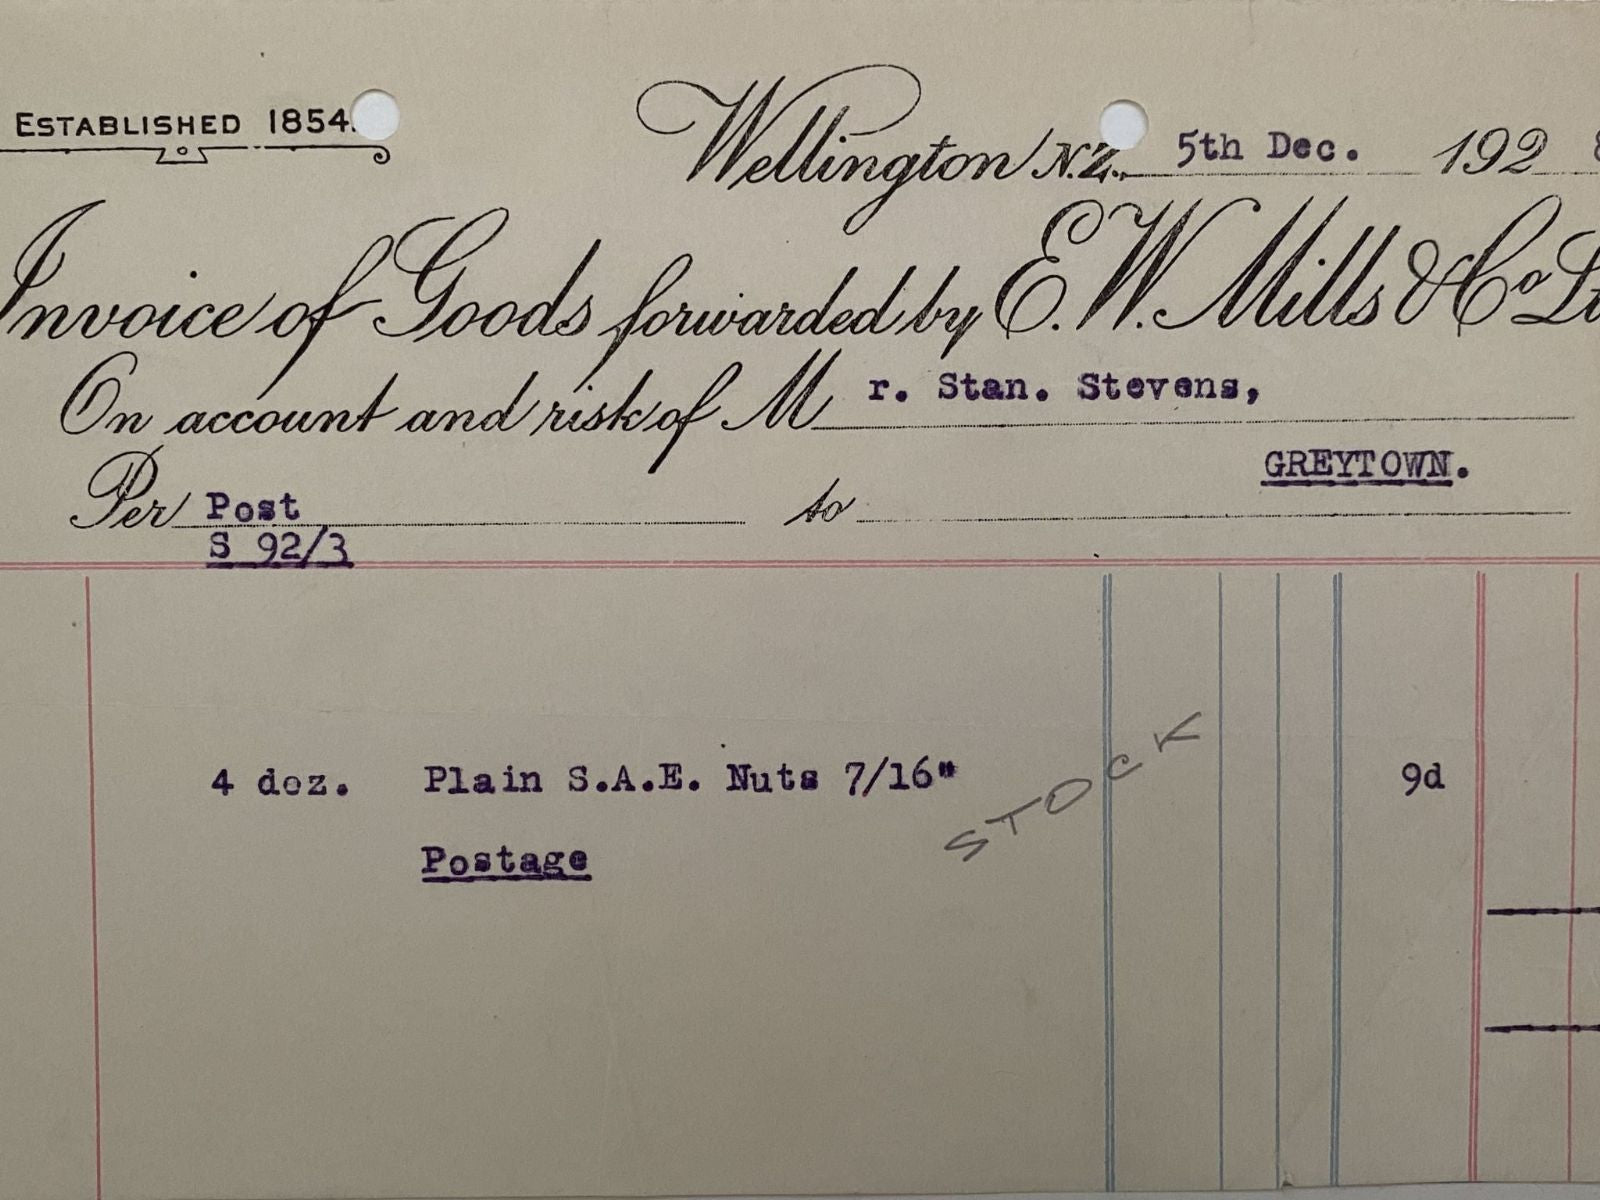 ESTABLISHED 1854.
Wellington N.Z., 5th Dec. 192
Invoice of Goods forwarded by E. W. Mills & Co
On account and risk of Mr. Stan. Stevens,
GREYTOWN.
Per Post to
S 92/3
4 doz. Plain S.A.E. Nuts 7/16" 9d
STOCK
Postage